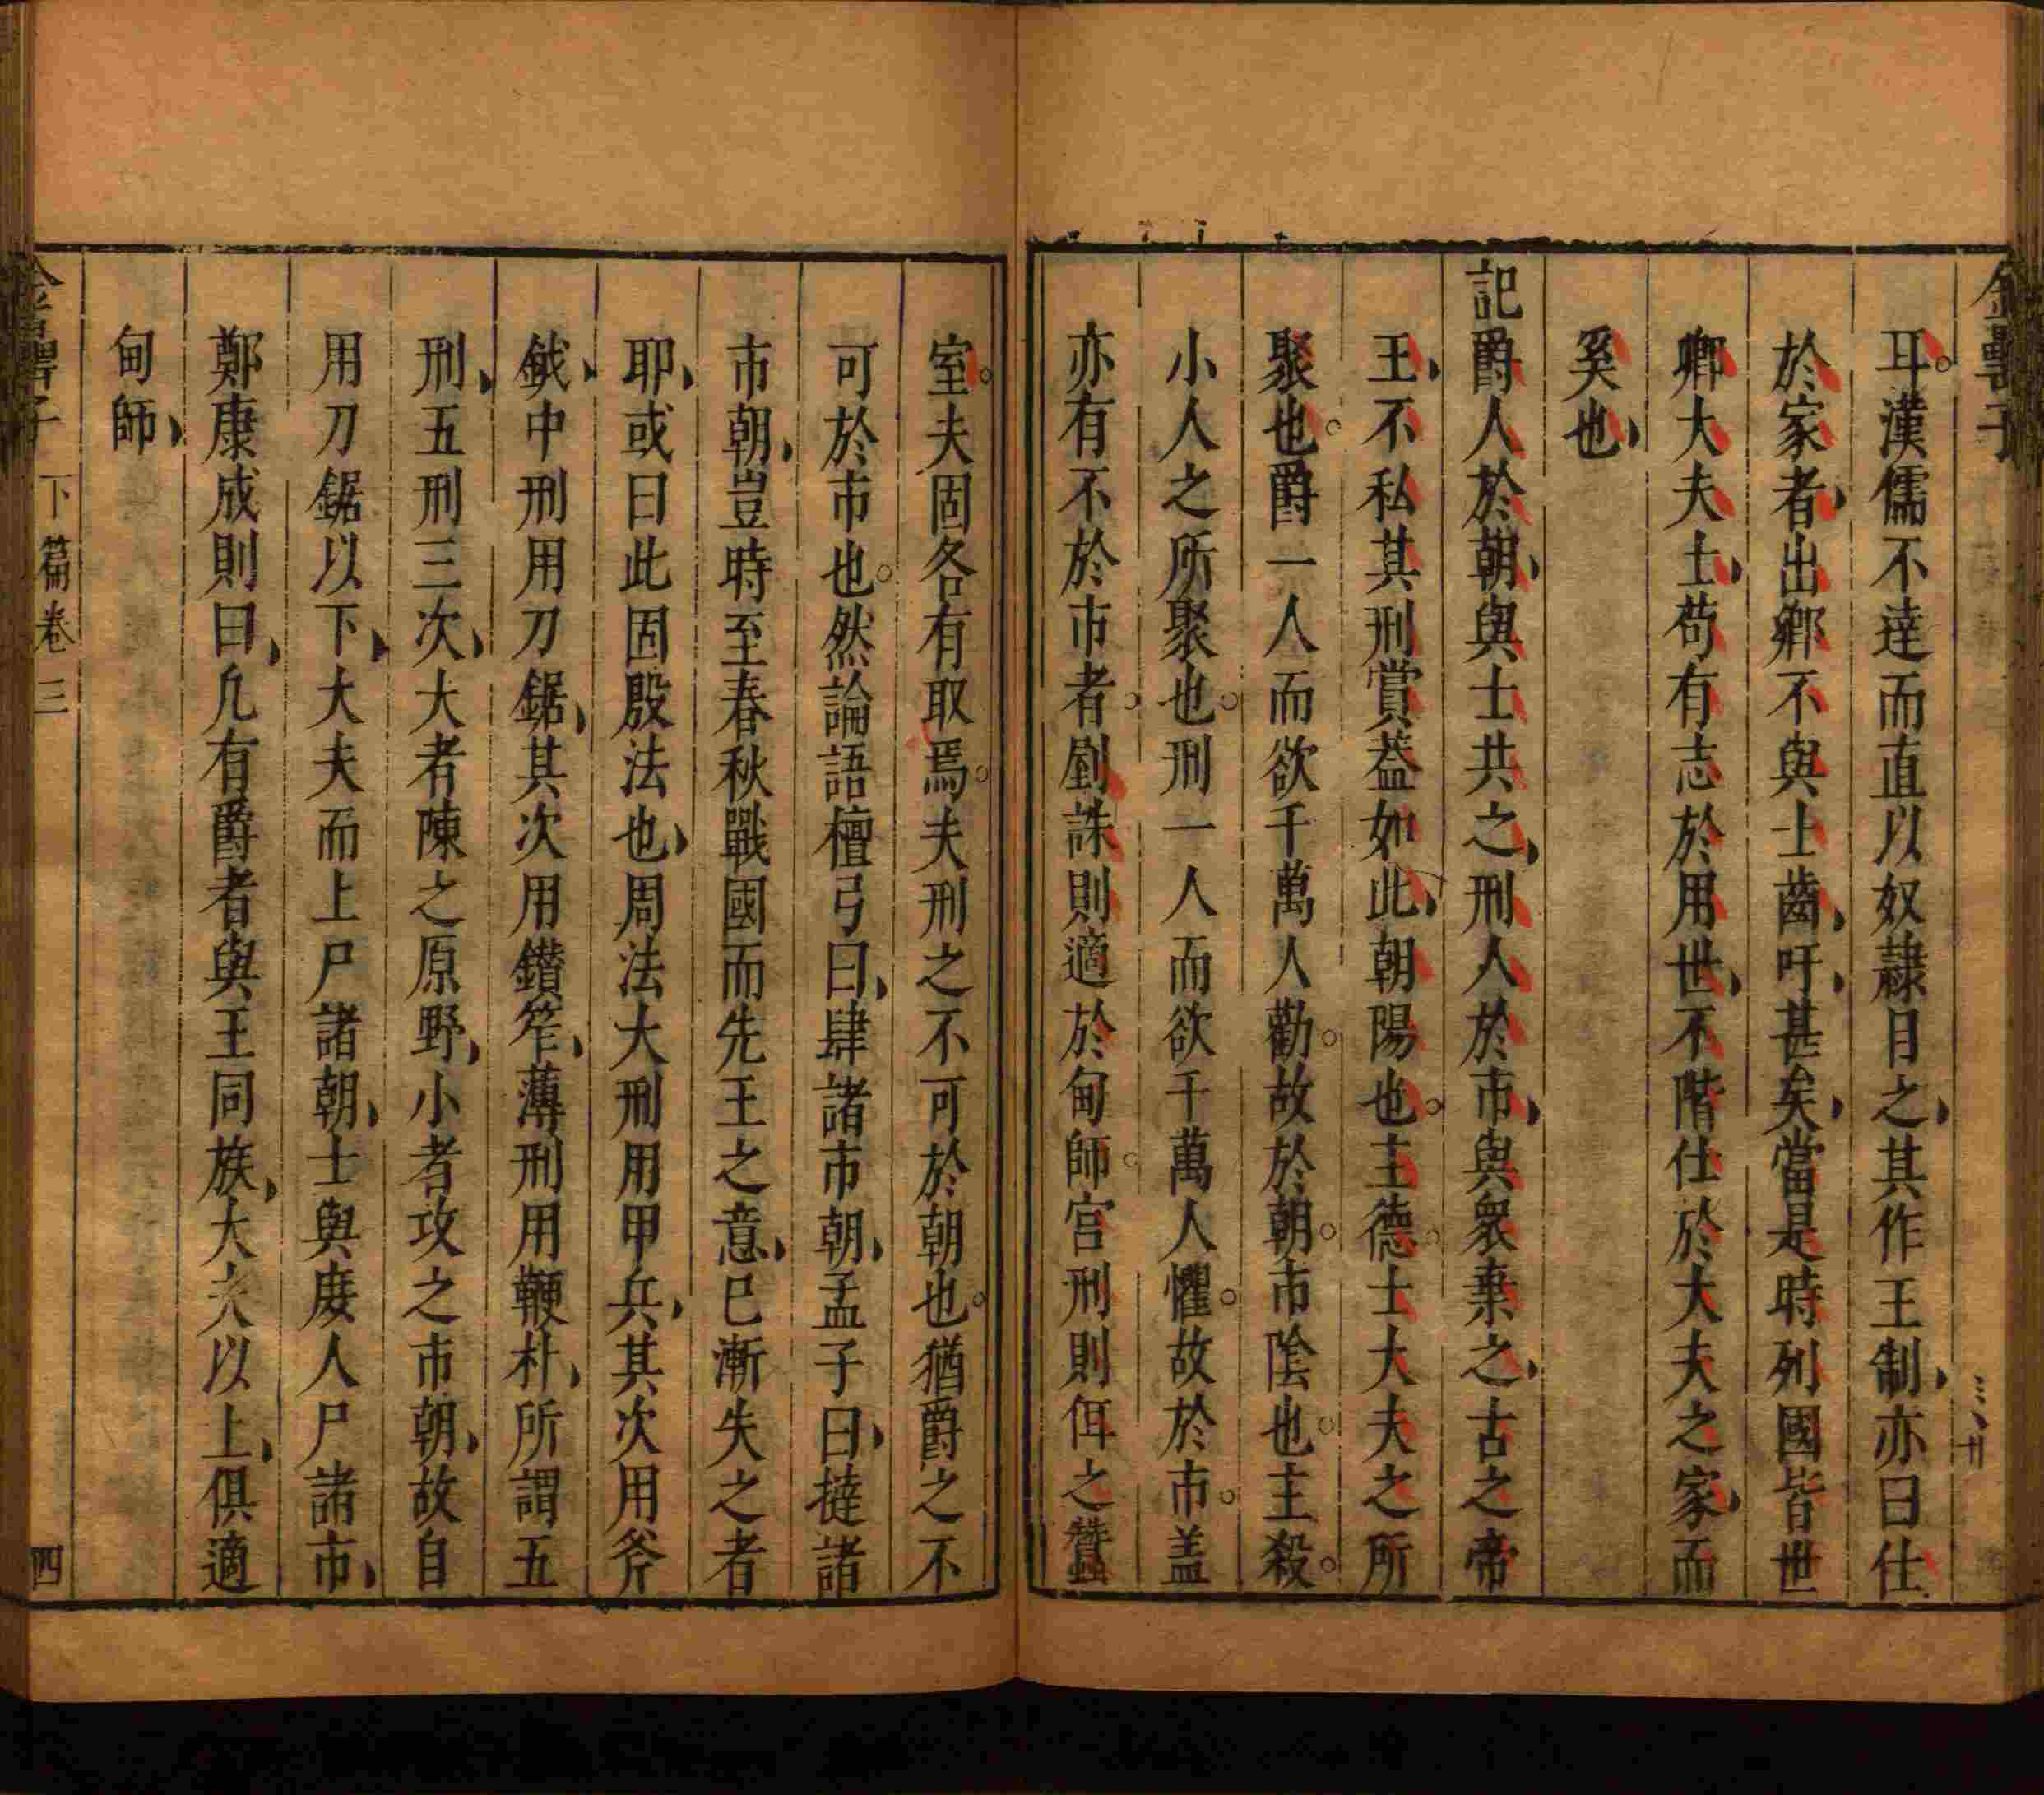 金罍子
耳漢儒不達而直以奴隷目之其作王制亦曰仕
於家者出鄉不與士齒吁甚矣當是時列國皆世
卿大夫士苟有志於用世不階仕於大夫之家而
奚也
記爵人於朝與士共之刑人於市與衆棄之古之帝
王不私其刑賞葢如此朝陽也主德士大夫之所
聚也爵一人而欲千萬人勸故於朝市陰也主殺
小人之所聚也刑一人而欲千萬人懼故於市盖
亦有不於市者劓誅則適於甸師宫刑則佴之蠶
室夫固各有取焉夫刑之不可於朝也猶爵之不
可於市也然論語檀弓曰肆諸市朝孟子曰撻諸
市朝豈時至春秋戰國而先王之意已漸失之者
耶或曰此固殷法也周法大刑用甲兵其次用斧
鉞中刑用刀鋸其次用鑽笮薄刑用鞭朴所謂五
刑五刑三次大者陳之原野小者攻之市朝故自
用刀鋸以下大夫而上尸諸朝士與庶人尸諸市
鄭康成則曰凡有爵者與王同族大夫以上俱適
甸師
金罍子 下篇卷三 四